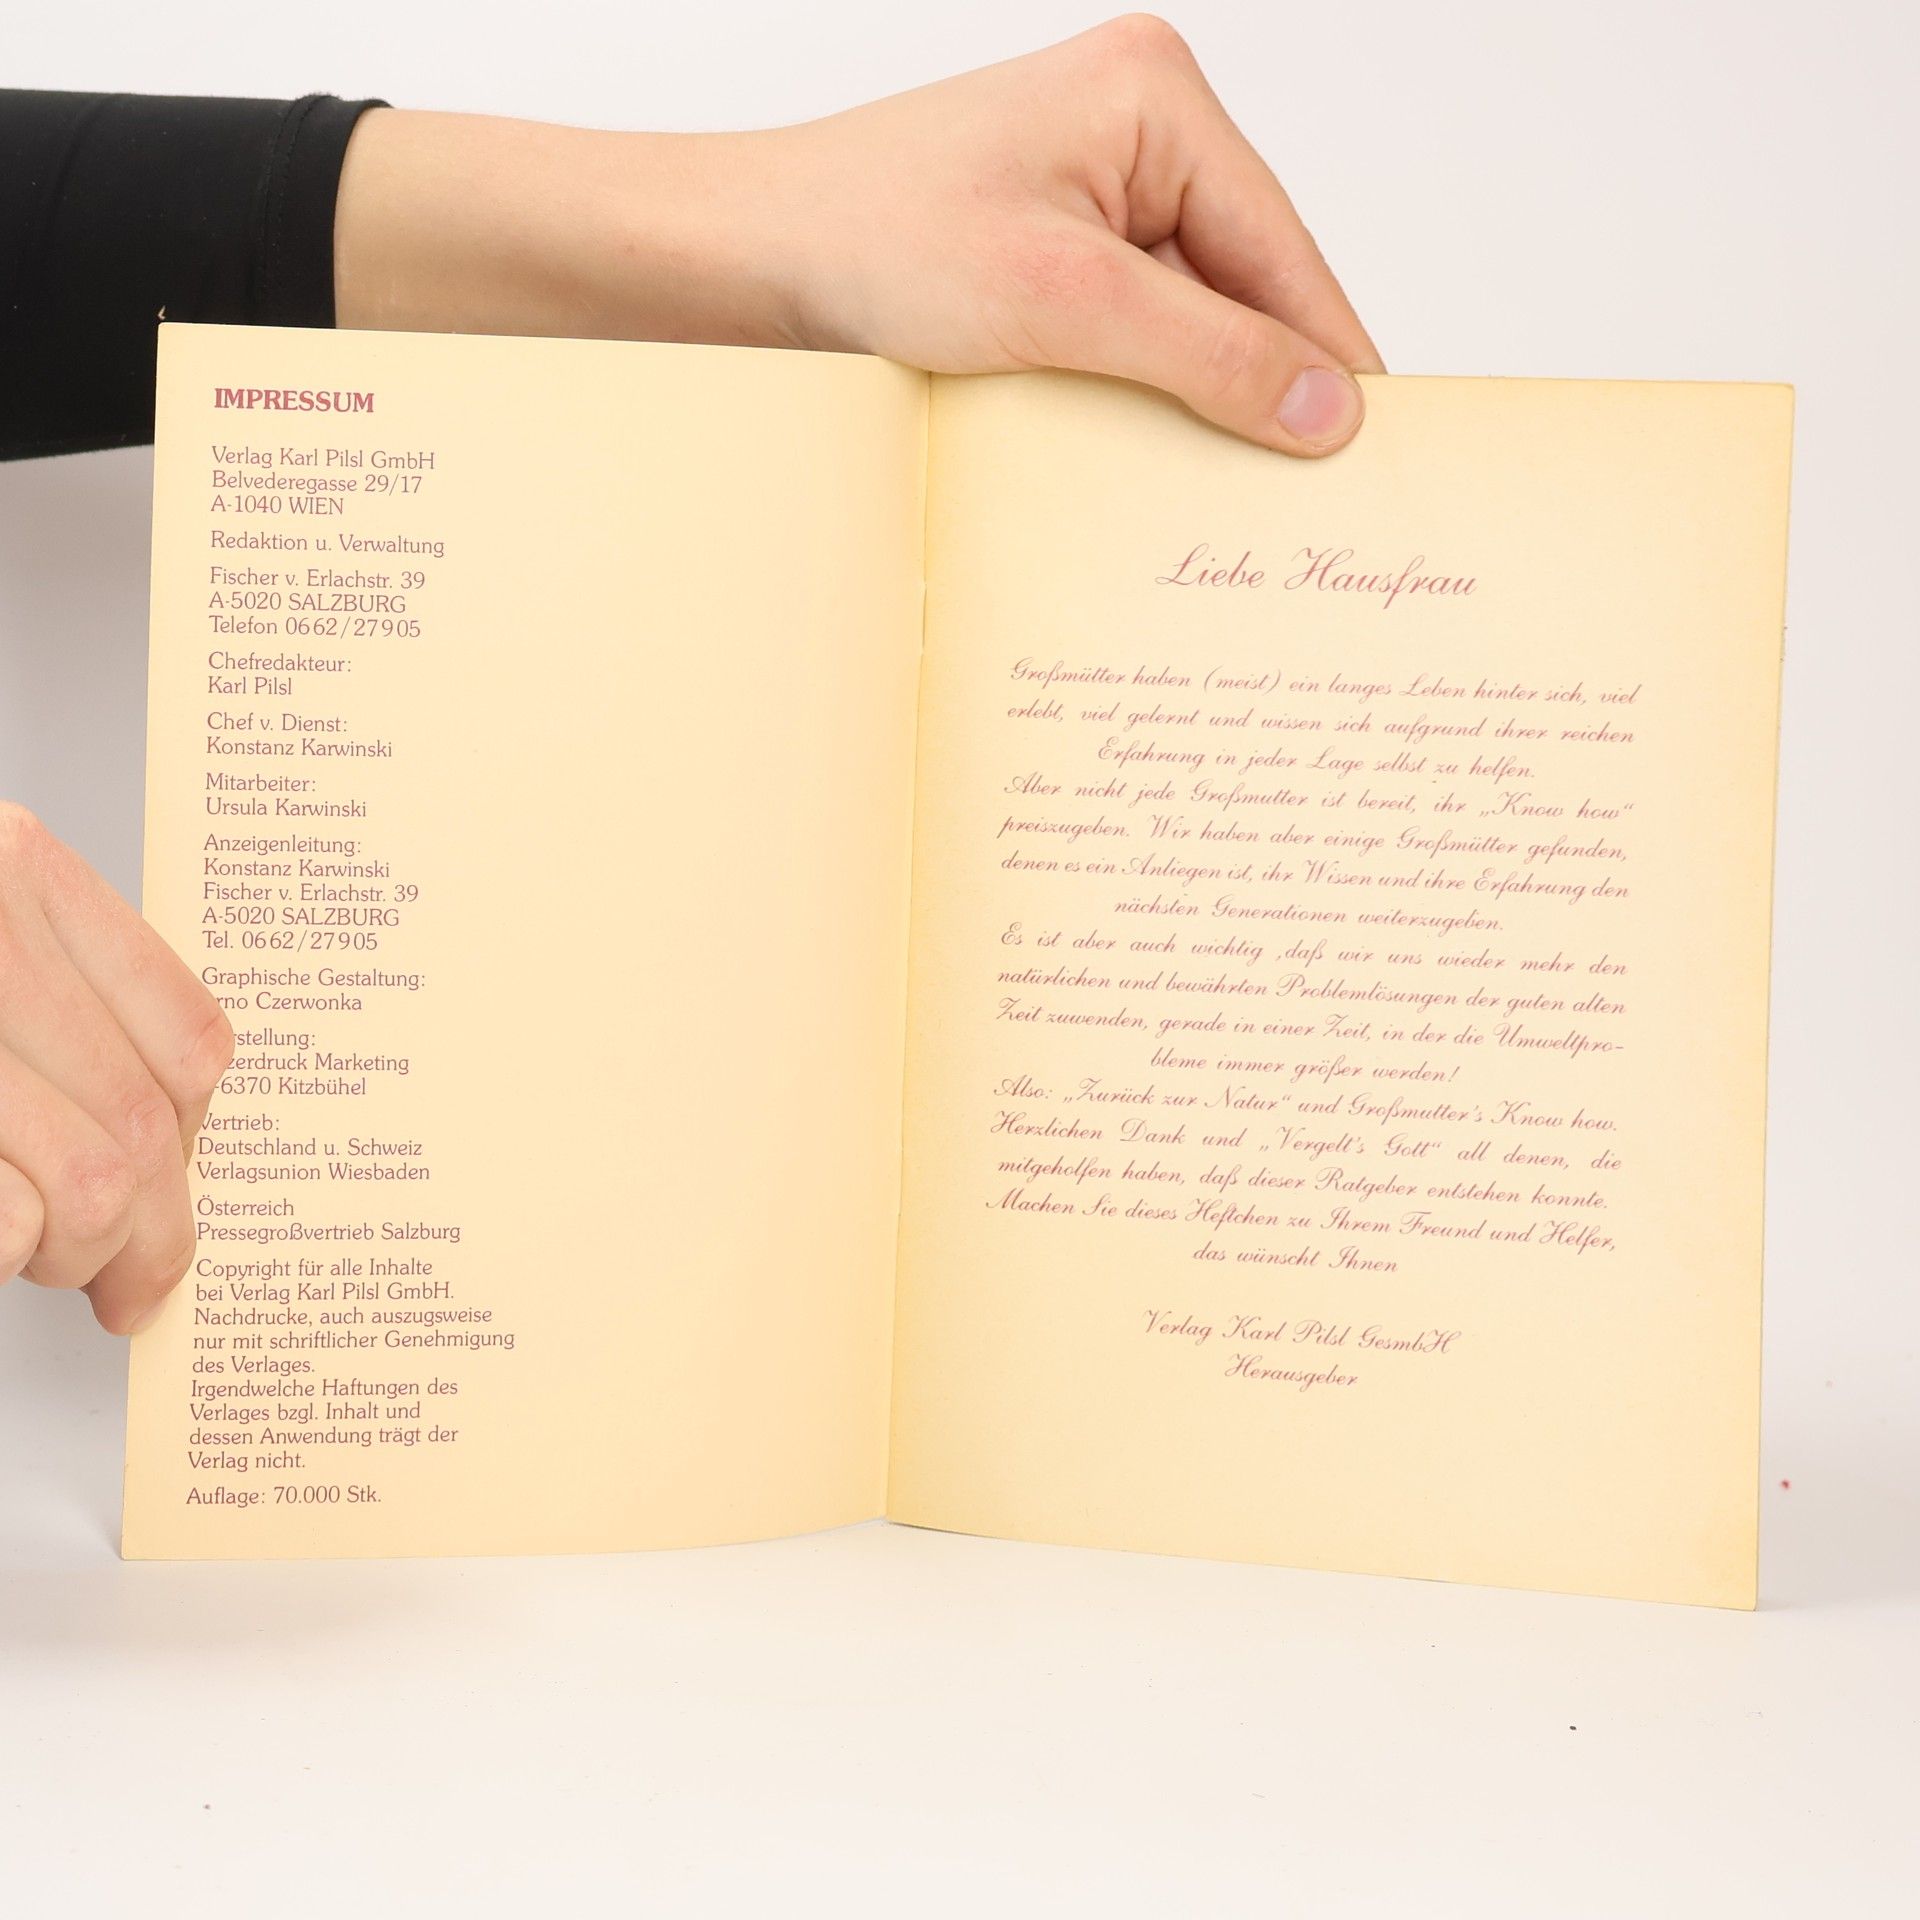 IMPRESSUM
Verlag Karl Pilsl GmbH
Belvederegasse 29/17
A-1040 WIEN
Redaktion u. Verwaltung
Fischer v. Erlachstr. 39
A-5020 SALZBURG
Telefon 0662/27905
Chefredakteur:
Karl Pilsl
Chef v. Dienst:
Konstanz Karwinski
Mitarbeiter:
Ursula Karwinski
Anzeigenleitung:
Konstanz Karwinski
Fischer v. Erlachstr. 39
A-5020 SALZBURG
Tel. 0662/27905
Graphische Gestaltung:
Czerwonka
Marketing
6370 Kitzbühel
Vertrieb:
Deutschland u. Schweiz
Verlagsunion Wiesbaden
Österreich
Pressegroßvertrieb Salzburg
Copyright für alle Inhalte
bei Verlag Karl Pilsl GmbH.
Nachdrucke, auch auszugsweise
nur mit schriftlicher Genehmigung
des Verlages.
Irgendwelche Haftungen des
Verlages bzgl. Inhalt und
dessen Anwendung trägt der
Verlag nicht.
Auflage: 70.000 Stk.
Liebe Hausfrau
Großmütter haben (meist) ein langes Leben hinter sich, viel
erlebt, viel gelernt und wissen sich aufgrund ihrer reichen
Erfahrung in jeder Lage selbst zu helfen.
Aber nicht jede Großmutter ist bereit, ihr „Know how“
preiszugeben. Wir haben aber einige Großmütter gefunden,
denen es ein Anliegen ist, ihr Wissen und ihre Erfahrung den
nächsten Generationen weiterzugeben.
Es ist aber auch wichtig ,daß wir uns wieder mehr den
natürlichen und bewährten Problemlösungen der guten alten
Zeit zuwenden, gerade in einer Zeit, in der die Umweltpro-
bleme immer größer werden!
Also: „Zurück zur Natur“ und Großmutter's Know how.
Herzlichen Dank und „Vergelt's Gott“ all denen, die
mitgeholfen haben, daß dieser Ratgeber entstehen konnte.
Machen Sie dieses Heftchen zu Ihrem Freund und Helfer,
das wünscht Ihnen
Verlag Karl Pilsl GesmbH
Herausgeber